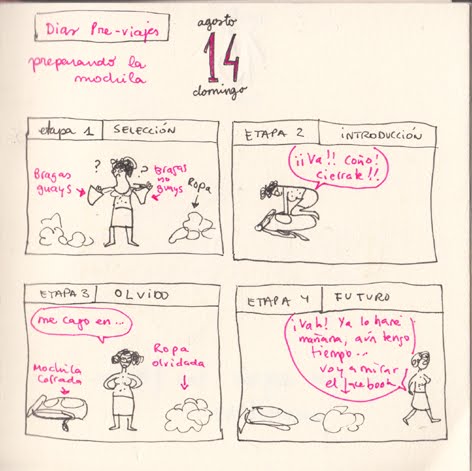 Dias Pre-viajes
preparando la
mochila
agosto
14
domingo
etapa 1
SELECCIÓN
? ?
Bragas
guays
Bragas
no
guays
Ropa
ETAPA 2
INTRODUCCIÓN
¡¡Va!! Coño!
cierrate!!
ETAPA 3
OLVIDO
me cago en...
Mochila
cerrada
Ropa
olvidada
ETAPA 4
FUTURO
¡Vah! Ya lo haré
mañana, aún tengo
tiempo...
voy a mirar
el facebook